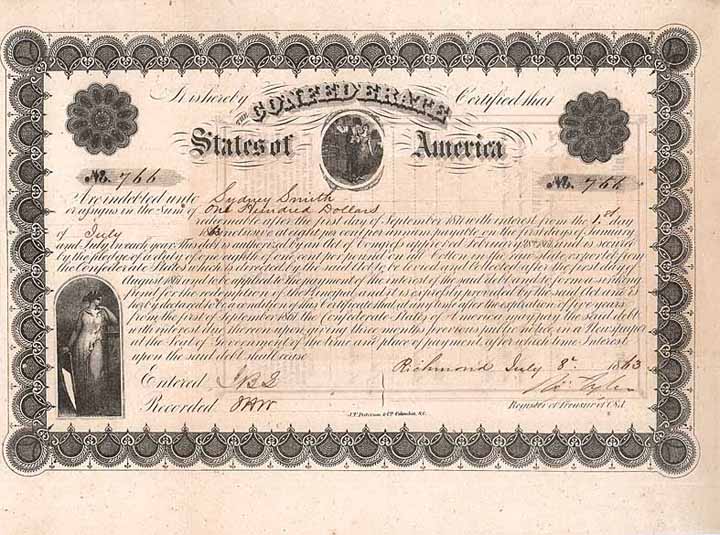 It is hereby THE CONFEDERATE Certified that
States of America
No. 766 No. 766
Are indebted unto Sydney Smith
or assigns in the Sum of One Hundred Dollars
redeemable after the first day of September 1871 with interest from the 1st day
of July inclusive at eight per cent per annum payable on the first days of January
and July in each year. This debt is authorized by an Act of Congress approved February and is secured
by the pledge of a duty of one eighth of one cent per pound on all Cotton in the raw state exported from
the Confederate States which is directed by the said Act to be levied and Collected after the first day of
August 1861 and to be applied to the payment of the interest of the said debt and to form a sinking
fund for the redemption of the Principal and it is expressly provided by the said Act and is
hereby declared to be a condition of this Contract that any time after the expiration of five years
from the first of September 1861 the Confederate States of America may pay the said debt
with interest due thereon upon giving three months previous public notice in a Newspaper
at the Seat of Government of the time and place of payment, after which time Interest
upon the said debt shall cease
Richmond July 8th 1863
Entered
Recorded
Register of Treasury C.S.A.
Columbia, S.C.